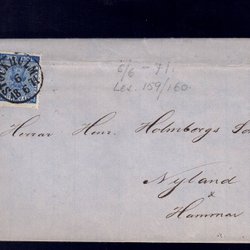 6/6 - 71.
Lev. 159/160
Herrar Henr. Holmbergs
Nyland
Hammar